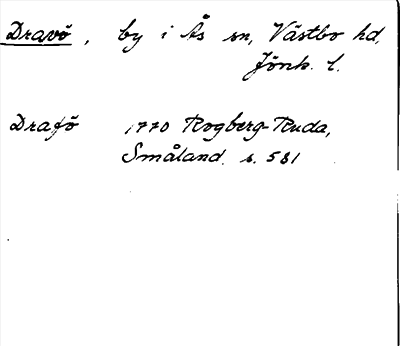 Dravö, by i Ås sn, Västbo hd,
Jönk. l.
Drafö 1770 Rogberg-Ruda,
Småland s. 581